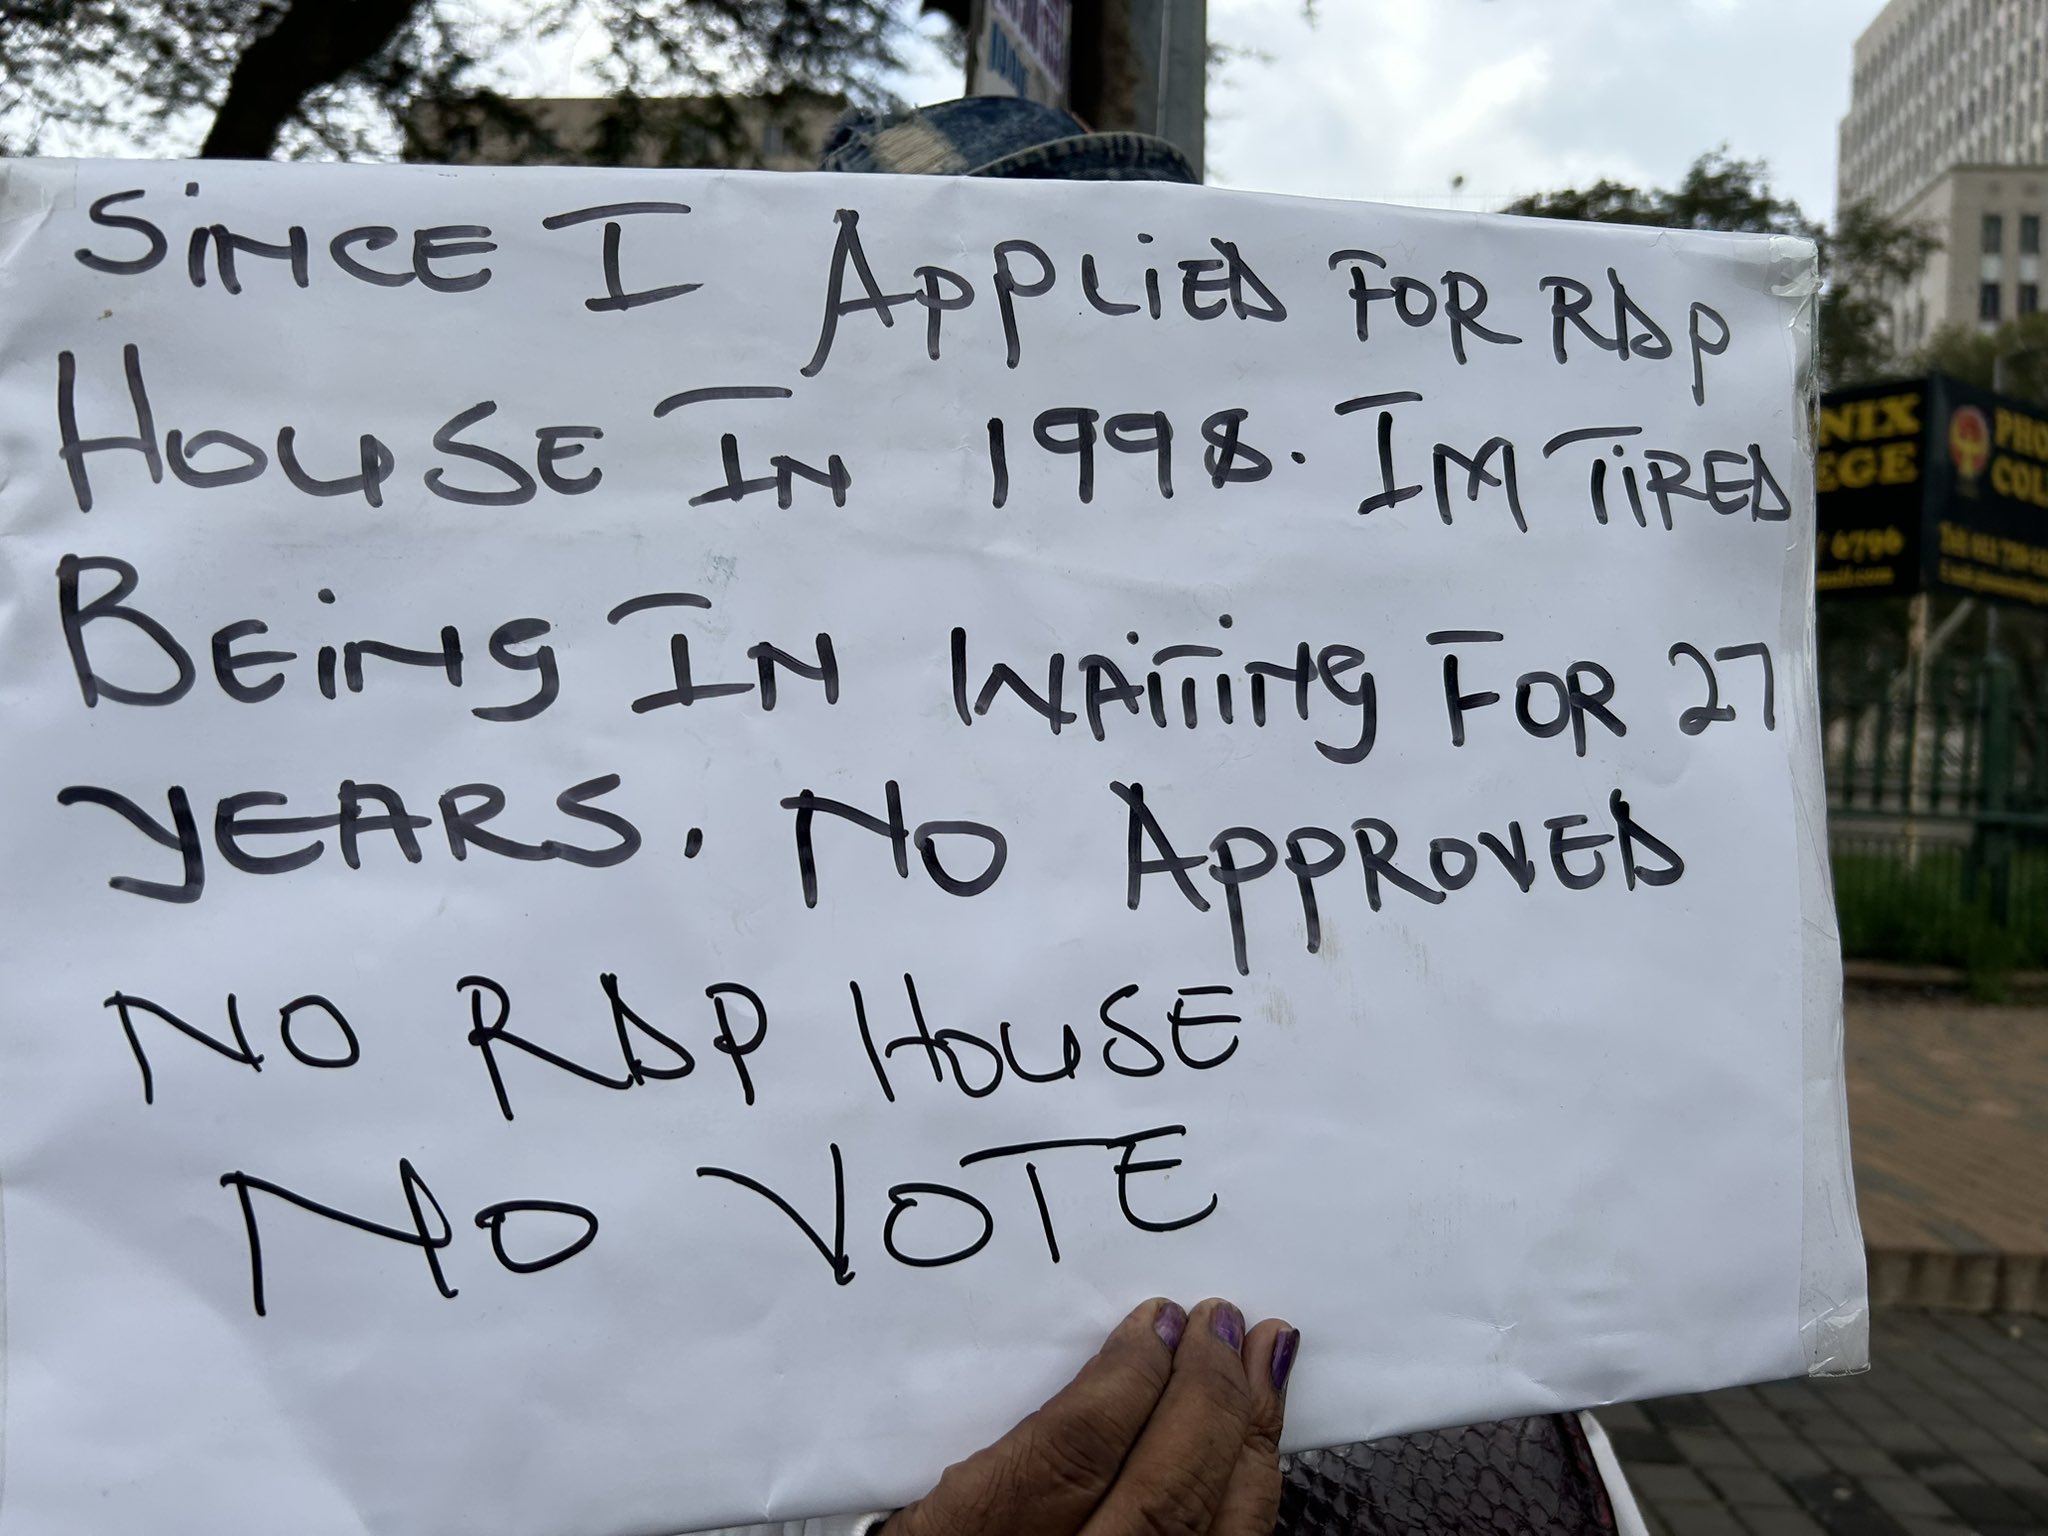 SiNCE I APPLiED FOR RDP
HOUSE IN 1998. IM TiRED
BEiNg IN WAiTiNg FOR 27
YEARS. NO APPROVED
NO RDP HOUSE
NO VOTE
NIX
EGE
6796
PHO
COL